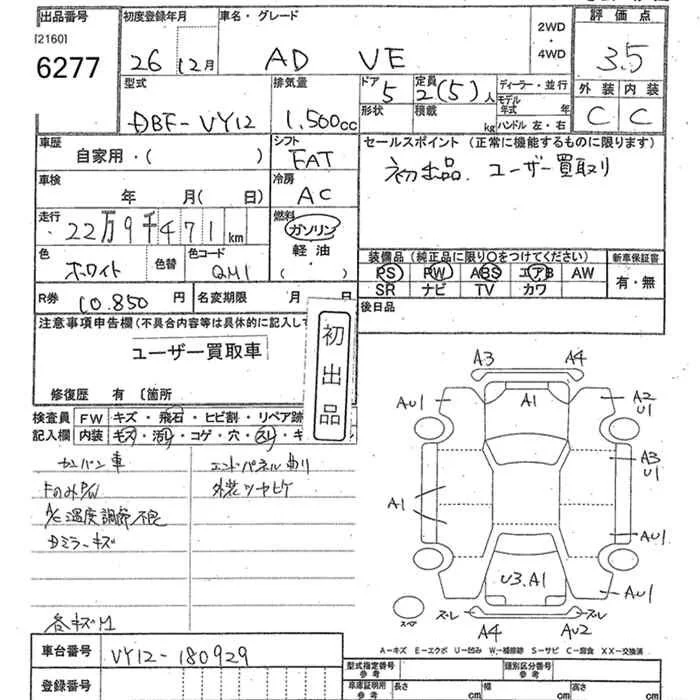 出品番号
[2160]
6277
初度登録年月
26 12月
車名・グレード
AD VE
2WD
・
4WD
評価点
3.5
外装 内装
C C
型式
DBF-VY12
排気量
1,500cc
ドア
5
形状
定員
2(5)人
積載
kg
ディーラー・並行
モデル年式 年
ハンドル 左・右
車歴
自家用・( )
シフト
FAT
車検
年 月( 日)
冷房
AC
走行
22万9千471 km
燃料
ガソリン
軽油
( )
色
ホワイト
色替
色コード
QM1
R券 10.850 円
名変期限 月 日
セールスポイント(正常に機能するものに限ります)
初出品、ユーザー買取り
装備品(純正品に限り○をつけてください)
PS PW ABS エアB AW
SR ナビ TV カワ
新車保証書
有・無
後日品
注意事項申告欄(不具合内容等は具体的に記入して
ユーザー買取車
修復歴 有 〔箇所
初出品
検査員記入欄
FW キズ・飛石・ヒビ割・リペア跡
内装 キズ・汚レ・コゲ・穴・スレ・キ
カンバン車
FのみP/W
A/C温度調節不良
Dミラーキズ
各キズH
エンドパネル曲り
外装ツヤヒケ
A3 A4
AU1 A1 A2
U1
A3
U1
A1
AU1
U3.A1 AU1
スペア
ズレ ズレ
A4 AU2
A-キズ E-エクボ U-凹み W-補修跡 S-サビ C-腐食 XX-交換済
車台番号 VY12-180929
登録番号
型式指定番号
参考
類別区分番号
参考
車庫証明用
参考
長さ cm
幅 cm
高さ cm